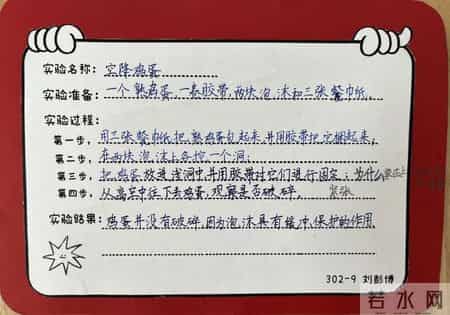 实验名称: 空降鸡蛋
实验准备: 一个熟鸡蛋,一卷胶带,两块泡沫和三张餐巾纸。
实验过程:
第一步, 用三张餐巾纸把熟鸡蛋包起来,并用胶带把它捆起来,
第二步, 在两块泡沫上各挖一个洞,
第三步, 把鸡蛋放进浅洞中,并用胶带对它们进行固定;为什么要在上
第四步, 从高空中任下去鸡蛋,观察是否破碎。 紧张
实验结果: 鸡蛋并没有破碎,因为泡沫具有缓冲、保护的作用。
302-9 刘彭博
若水网